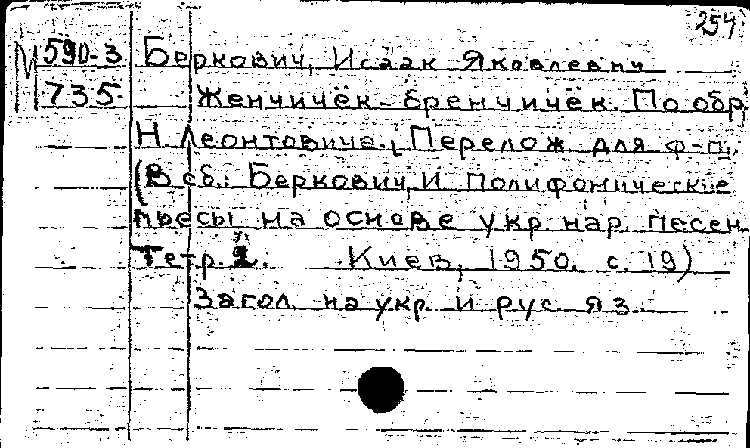 254
М 590-3 Беркович, Исаак Яковлевич
735 Женчичёк-бренчичёк. По обр.
Н. Леонтовича. Перелож. для ф-п.
(В сб.: Беркович, И. Полифонические
пьесы на основе укр. нар. песен.
Тетр. 1. Киев, 1950. с. 19)
Загол. на укр. и рус. яз.